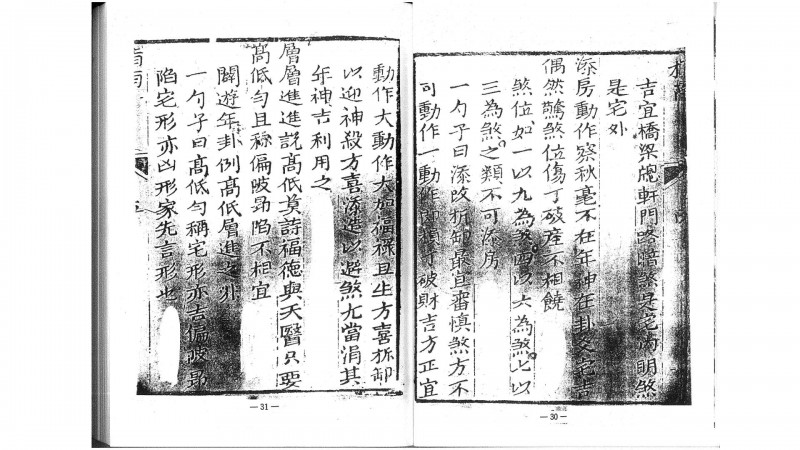 吉宜橋梁牕軒門路暗煞是宅內明煞
是宅外
添房動作察秋毫不在年神在卦爻宅吉
偶然驚煞位傷丁破產不相饒
煞位如一以九為煞四以六為煞七以
三為煞之類不可添房
一勺子曰添改拆卸最宜審慎煞方不
可動作一動作即損丁破財吉方正宜
— 30 —
動作大動作大加福祿且生方喜拆卸
以迎神殺方喜添造以避煞尤當涓其
年神吉利用之
層層進進說高低莫詩福德與天醫只要
高低勻且稱偏陂昻陷不相宜
闢遊年卦例高低層進之非
一勺子曰高低勻稱宅形亦吉偏陂昻
陷宅形亦凶形家先言形也
— 31 —